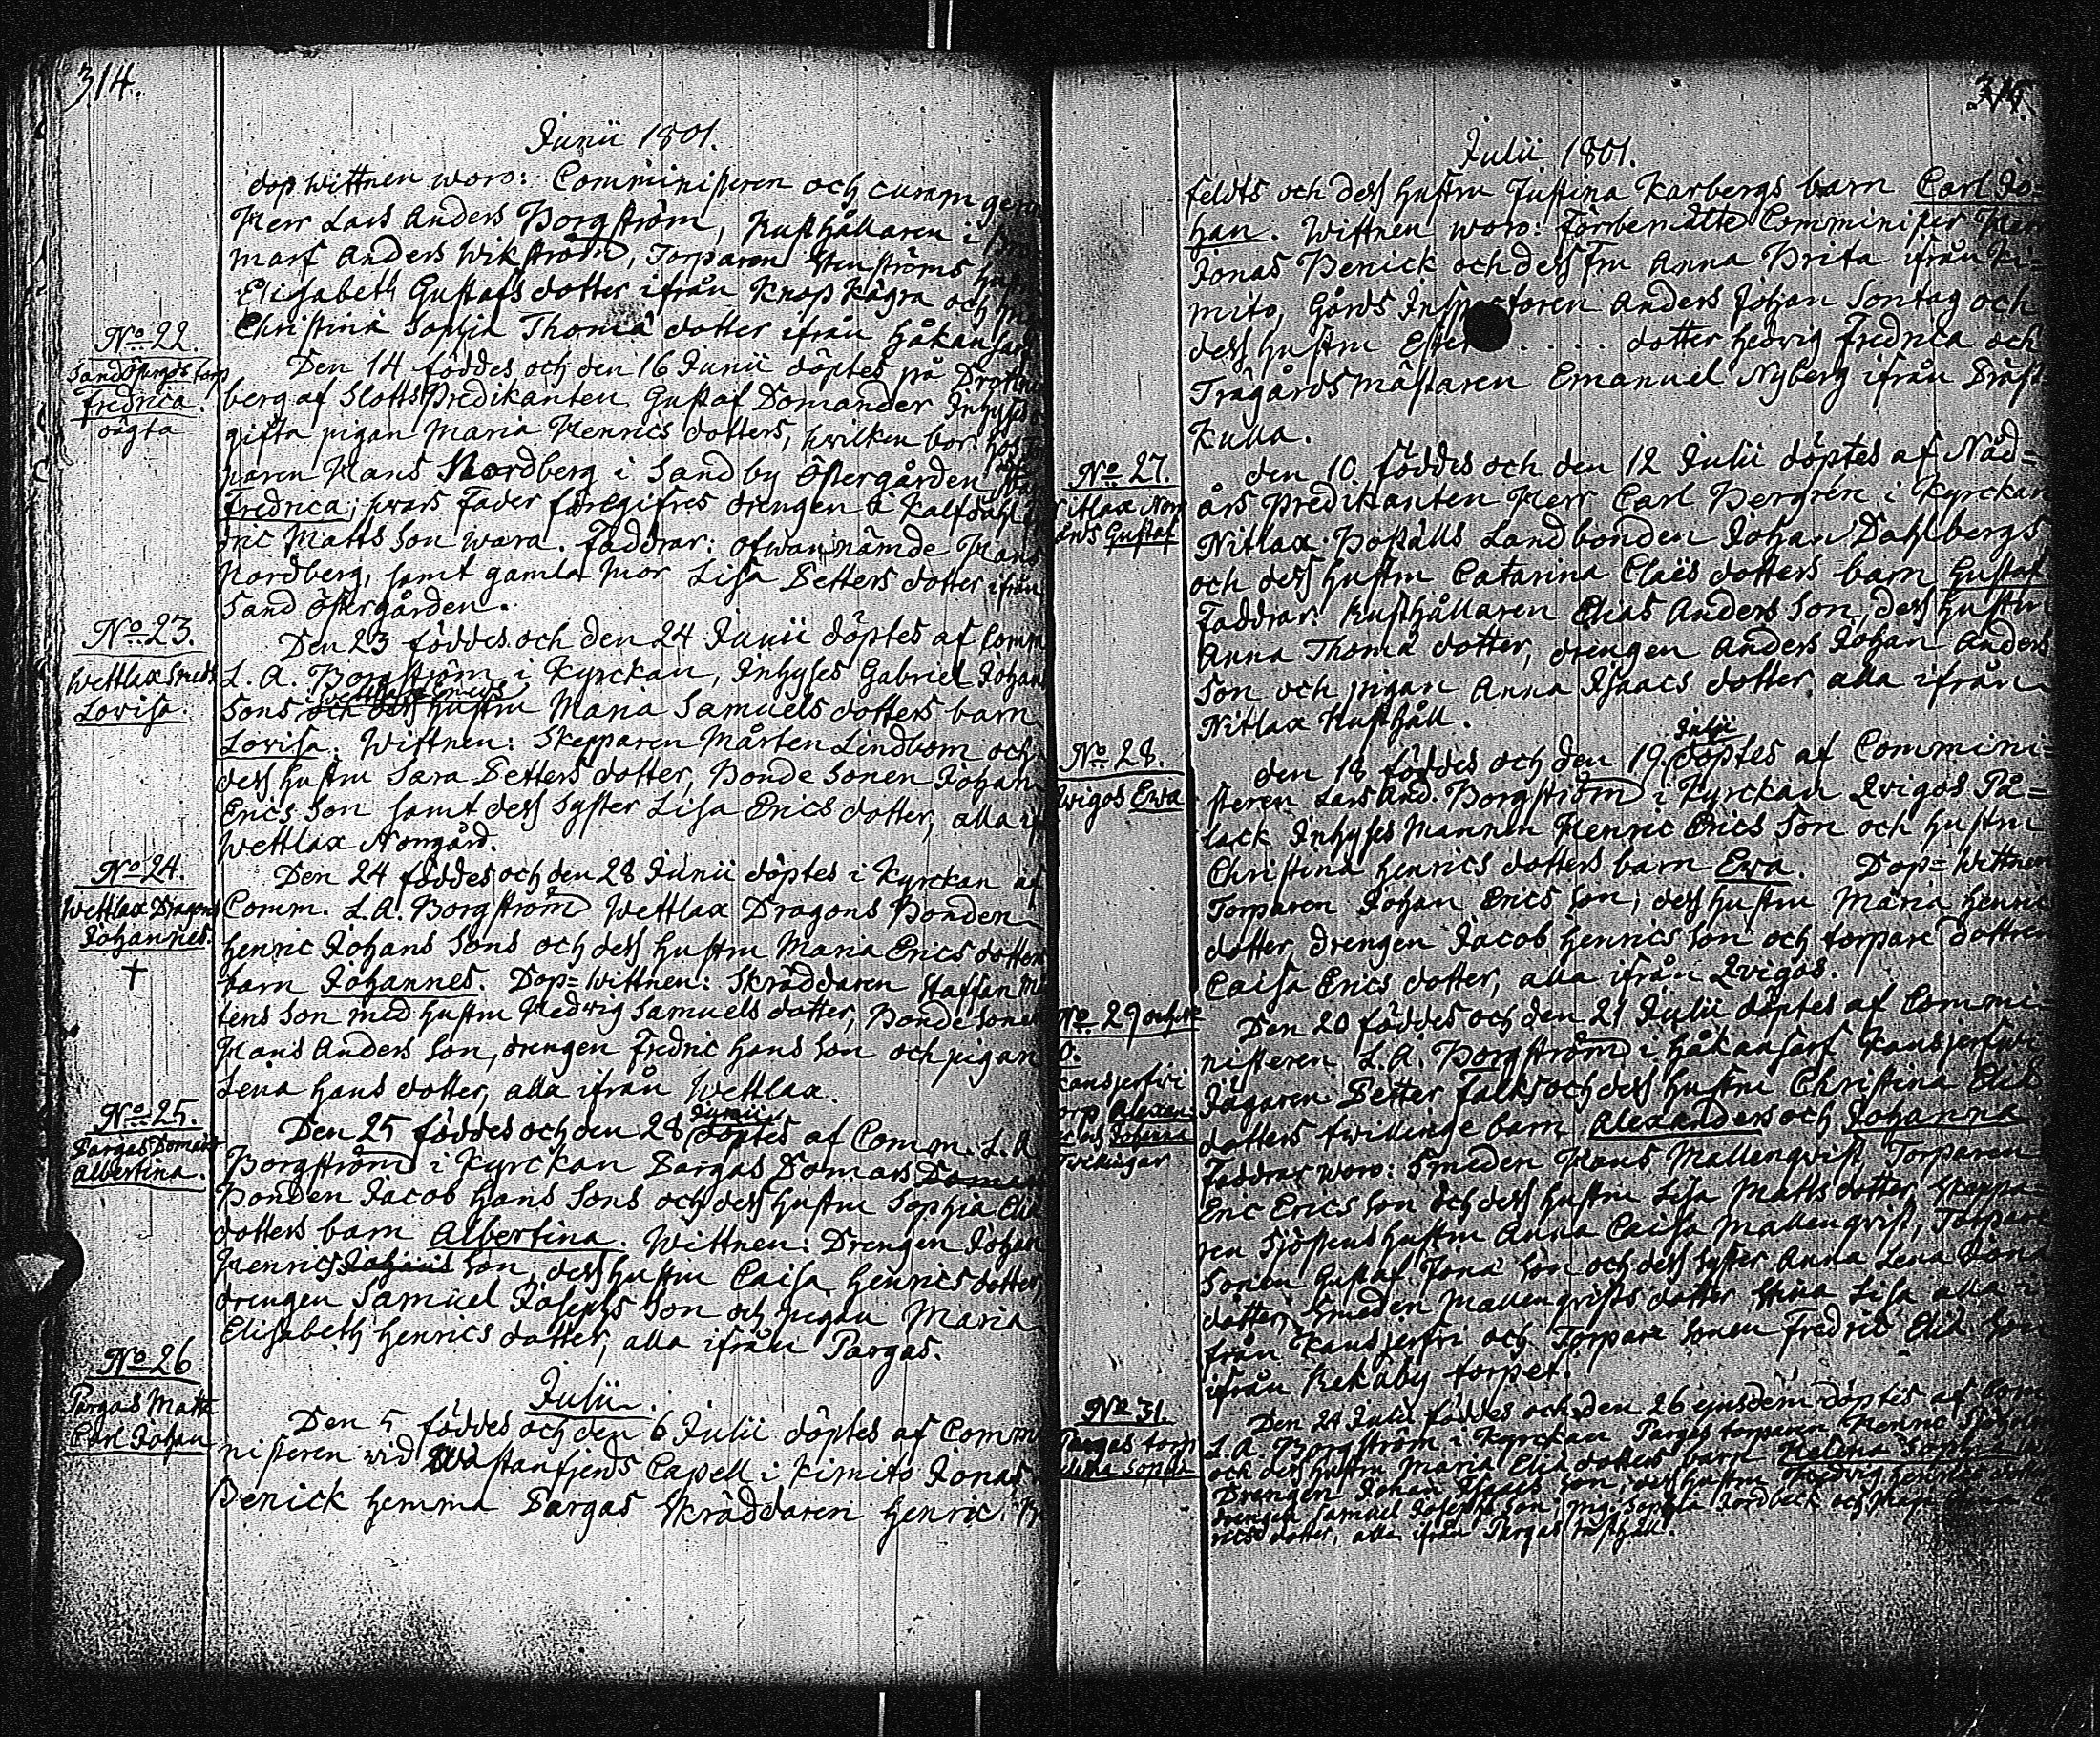 314.
Junii 1801.
dop wittnen woro: Comministeren och curam
Herr Lars Anders Borgström, Rusthållaren i
marf Anders Wikström, Torparen Stenströms
Elisabeth Gustafs dotter ifrån Knopkägra och
Christina Sophia Thomæ dotter ifrån Håkansarf
No 22.
Sand Östergås torp
Fredrica.
oägta
Den 14 föddes och den 16 Junii döptes på
berg af Slotts Predikanten Gustaf Domander Inhyses
gifta pigan Maria Henrics dotters, hwilken bor hos
paren Hans Nordberg i Sand by Östergården
Fredrica; hwars Fader föregifves drengen i Kalfdahl
dric Matts Son wara. Faddrar: ofwannämde Hans
Nordberg, samt gamla mor Lisa Petters dotter ifrån
Sand Östergården.
No 23.
Wettlax Smeds
Lovisa.
Den 23 föddes och den 24 Junii döptes af Comm
L. A. Borgström i Kyrckan, Inhyses Gabriel Johans
Sons och dess hustru Maria Samuels dotters barn
Lovisa. Wittnen: Skepparen Mårten Lindbom och
dess hustru Sara Petters dotter, Bonde Sonen Johan
Erics Son samt dess Syster Lisa Erics dotter, alla
Wettlax Norrgård.
No 24.
Wettlax Dragons
Johannes.
†
Den 24 föddes och den 28 Junii döptes i Kyrckan af
Comm. L. A. Borgström Wettlax Dragons Bonden
Henric Johans Sons och dess hustru Maria Erics dotters
barn Johannes. Dop=Wittnen: Skräddaren Staffan
tens Son med hustru Hedwig Samuels dotter, Bonde Sonen
Hans Anders Son, drengen Fredric Hans Son och pigan
Lena Hans dotter, alla ifrån Wettlax.
No 25.
Pargas Domars
Albertina.
Junii
Den 25 föddes och den 28 döptes af Comm. L. A
Borgström i Kyrckan Pargas Domars
Bonden Jacob Hans Sons och dess hustru Sophia
dotters barn Albertina. Wittnen: Drengen Johan
Henrics Son, dess hustru Caisa Henrics dotter,
drengen Samuel Josephs Son och pigan Maria
Elisabeth Henrics dotter, alla ifrån Pargas.
No 26
Pargas Matts
Carl Johan
Julii.
Den 5 föddes och den 6 Julii döptes af Commi
nisteren wid Wästanfjerds Capell i Kimito Jonas
Benick hemma Pargas Skräddaren Henric
Julii 1801.
feldts och dess hustru Justina Karbergs barn Carl Jo=
han. Wittnen woro: Förbemälte Comminister Herr
Jonas Benick och dess Fru Anna Brita ifrån Ki=
mito, Gårds Inspectoren Anders Johan Sontag och
dess hustru Ester . . . . dotter Hedvig Fredrica och
Trägårdsmästaren Emanuel Nyberg ifrån Präst=
Kulla.
No 27.
Nitlax
Gustaf
den 10 föddes och den 12 Julii döptes af Nåd=
års Predikanten Herr Carl Bergrén i Kyrckan
Nitlax Boställs Landbonden Johan Dahlbergs
och dess hustru Catarina Claës dotters barn Gustaf
Faddrar: Rusthållaren Elias Anders Son, dess hustru
Anna Thomæ dotter, drengen Anders Johan Anders
Son och pigan Anna Isaacs dotter alla ifrån
Nitlax Rusthåll.
No 28.
Qvigos Ewa
Julii
den 18 föddes och den 19 döptes af Commini=
steren Lars And. Borgström i Kyrckan Qvigos På=
lack Inhyses Mannen Henric Erics Son och hustru
Christina Henrics dotters barn Ewa. Dop=Wittnen
Torparen Johan Erics Son, dess hustru Maria Henrics
dotter, drengen Jacob Henrics Son och torpare dottren
Caisa Erics dotter, alla ifrån Qvigos.
No 29 och

Kansjerfwi
torp Alexan=
der och Johanna
Twillingar
Den 20 föddes och den 21 Julii döptes af Commi=
nisteren L. A. Borgström i Håkansarf Kansjerfwi
Jägaren Petter Falks och dess hustru Christina Eliæ
dotters twillinge barn Alexander och Johanna
Faddrar woro: Smeden Hans Mallenqvist, Torparen
Eric Erics Son och dess hustru Lisa Matts dotter, Skeppa
ren Sjöstens hustru Anna Caisa Mallenqvist, Torpare
Sonen Gustaf Jonæ Son och dess Syster Anna Lena Jonæ
dotter, Smeden Mallenqvists dotter Stina Lisa alla i
från Kansjerfri och Torpare Sonen Fredric Eliæ Son
ifrån Rekuby torpet.
No 31.
Pargas torp
Helena Sophia
Den 24 Julii föddes och den 26 ejusdem döptes af Com
L. A. Borgström i Kyrckan Pargas torparen Henric
och dess hustru Maria Eliæ dotters barn Helena Sophia
Drengen Johan Isaacs Son, dess hustru Hedvig Henrics
drengen Samuel Josephs Son, Sophia Nordbeck och
rics dotter, alla ifrån Pargas rusthåll.